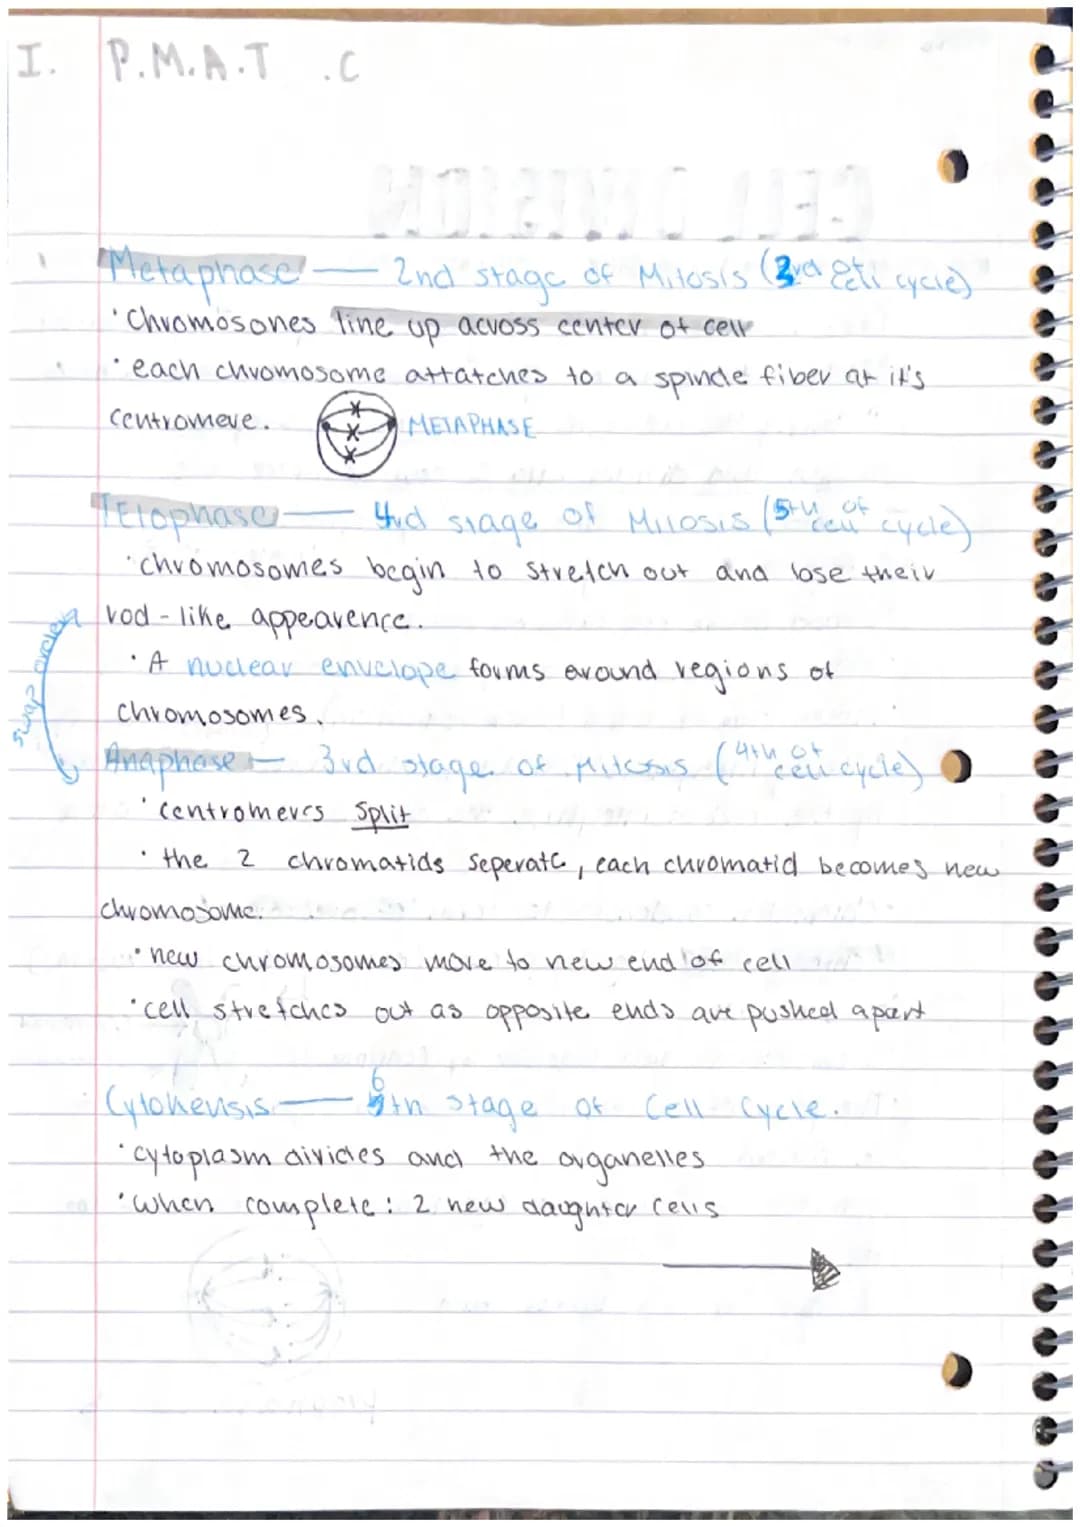 I. P.M.A.T .C
CELL DIVISION
Metaphase — 2nd stage of Mitosis (3rd cell cycle)
·Chromosones line up across center of cell
·each chromosome attatches to a spindle fiber at it's
centromere. METAPHASE
TElophase — 4rd stage of Mitosis (5th of cell cycle)
·chromosomes begin to stretch out and lose their
rod-like appearence.
·A nuclear envelope forms around regions of
chromosomes.
swap orders
Anaphase — 3rd stage of Mitosis (4th of cell cycle)
·centromers split
·the 2 chromatids seperate, each chromatid becomes new
chromosome.
·new chromosomes move to new end of cell
·cell stretches out as opposite ends are pushed apart
Cytokenisis — 6th stage of Cell Cycle.
·cytoplasm divides and the organelles
·when complete: 2 new daughter cells